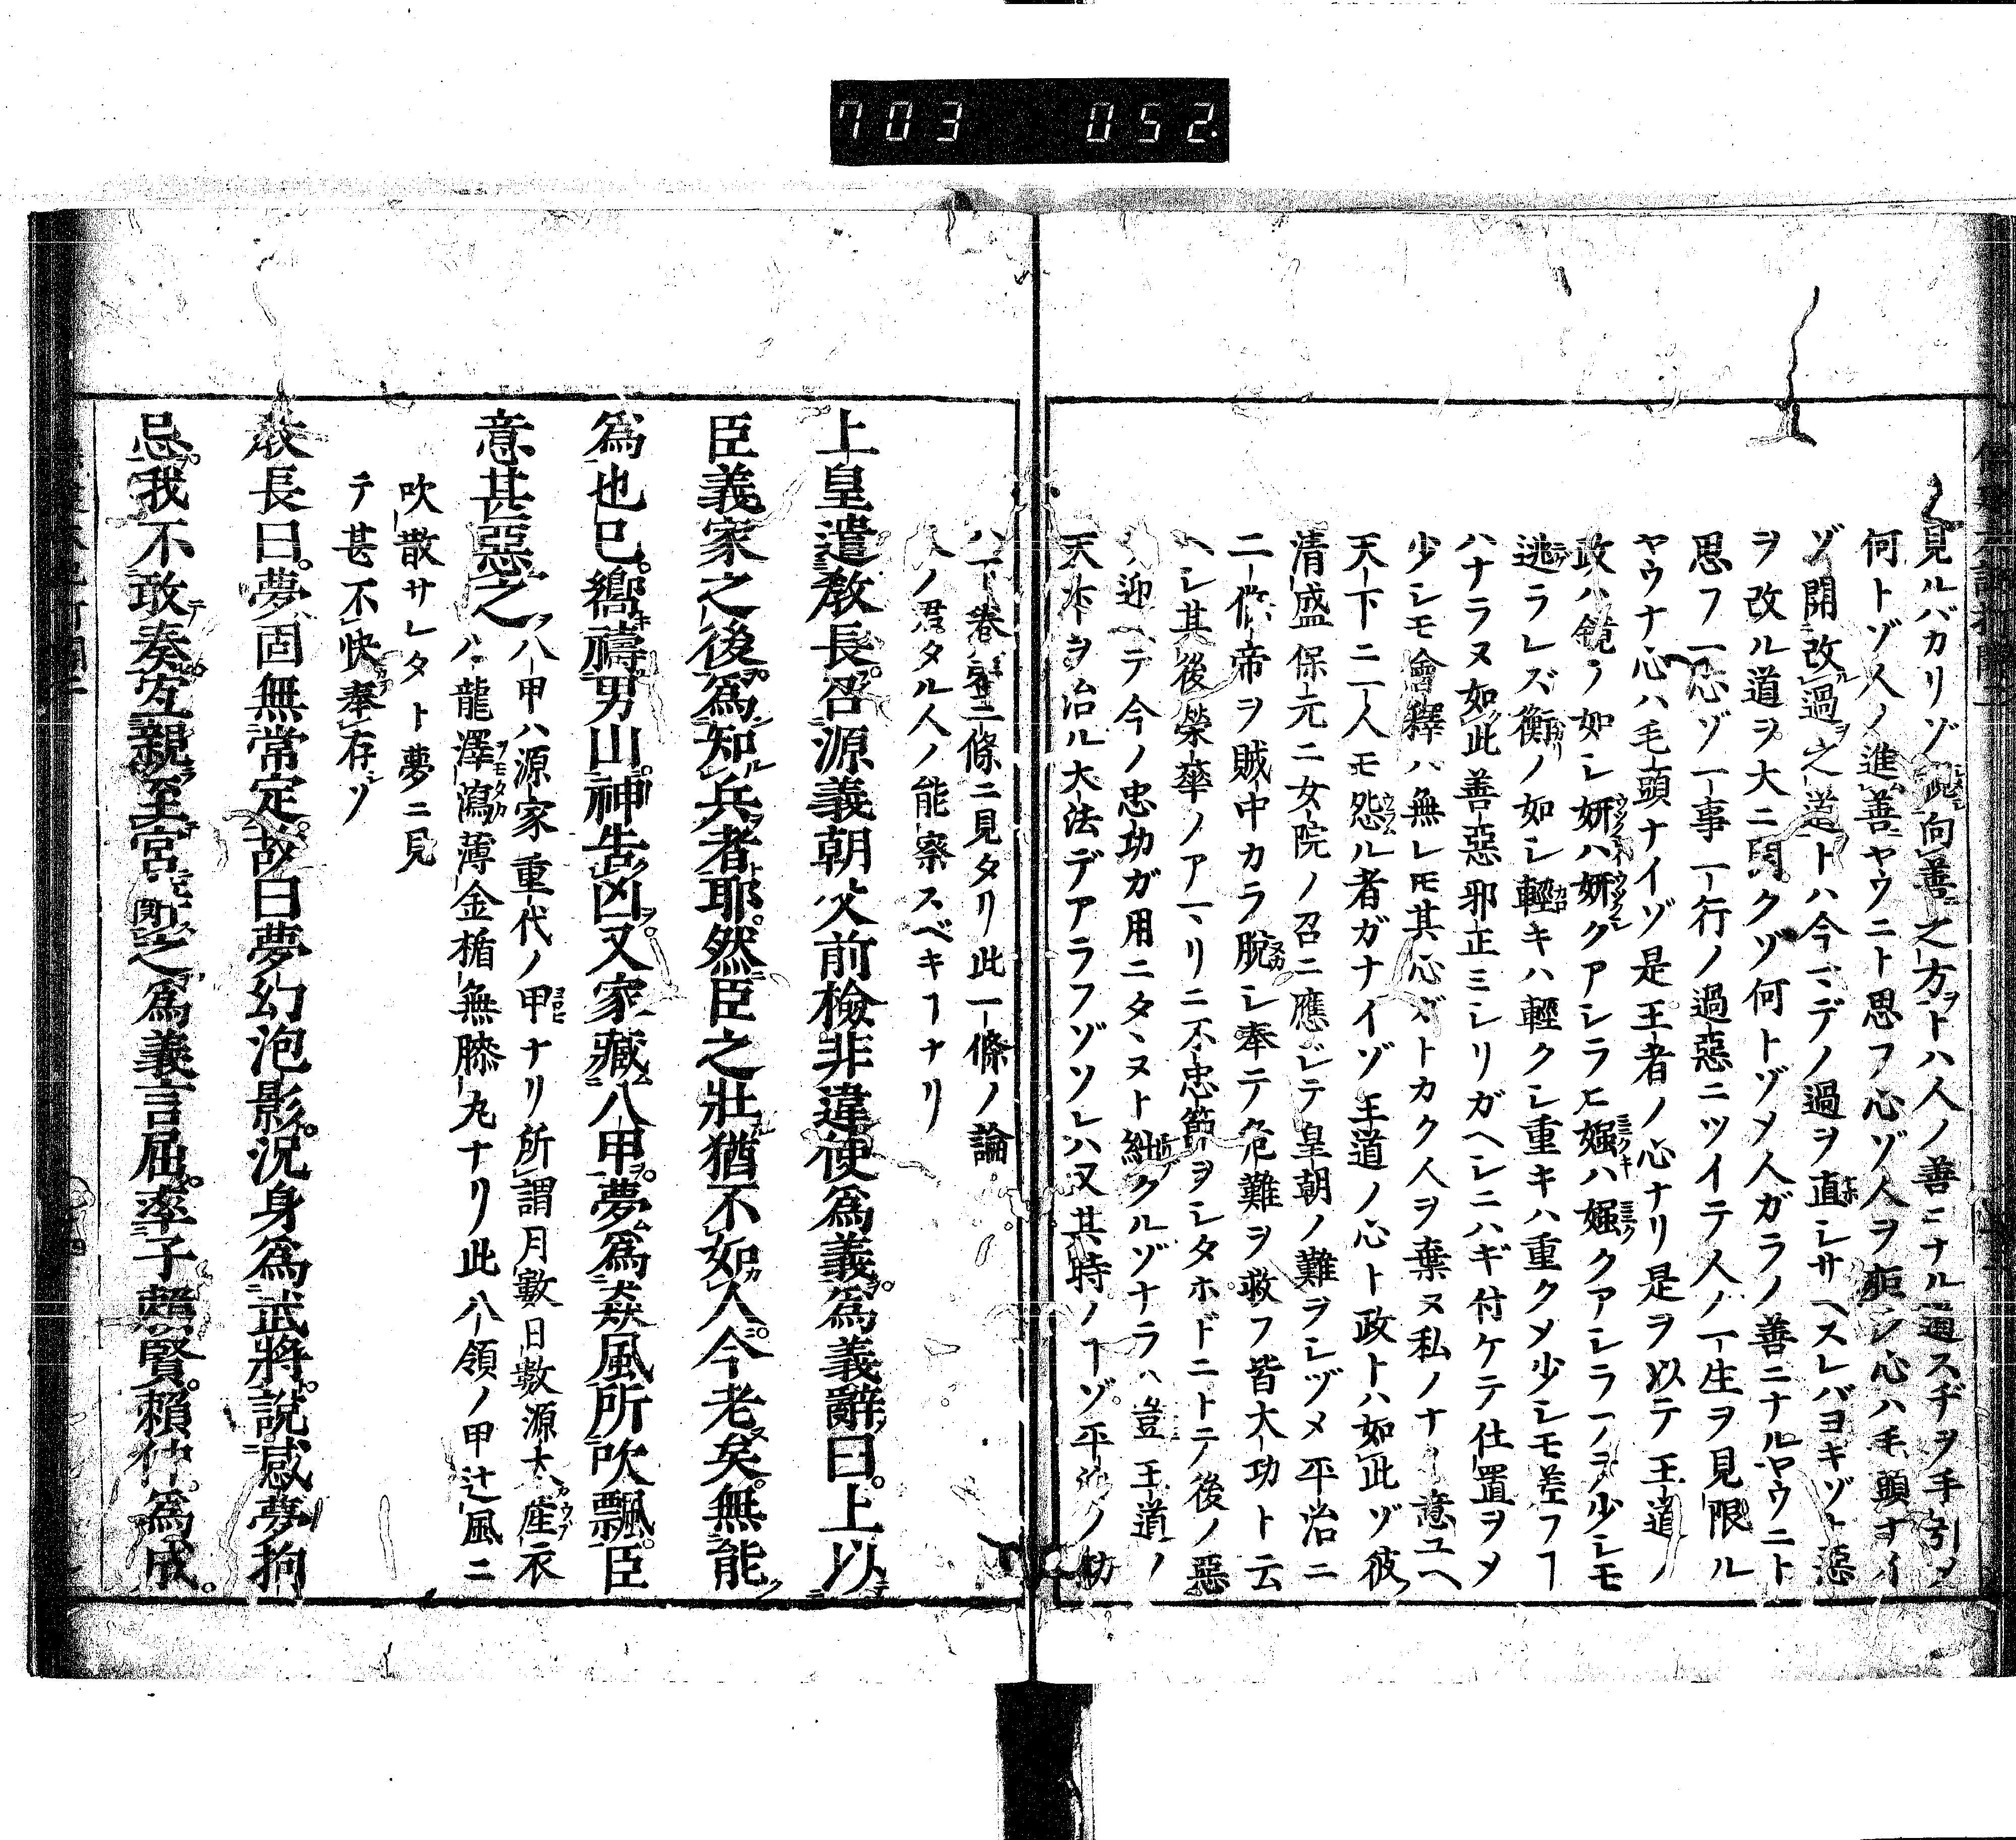 703 052
見ルバカリゾ向善之方ヲトハ人ノ善ニナル道スヂヲ手引ノ
何トゾ人ノ進善ヤウニト思フ心ゾ人ヲ拒ム心ハ毛頭ナイ
ゾ開改過之道トハ今マデノ過ヲ直シサヘスレバヨキゾト惡
ヲ改ル道ヲ大ニ開クゾ何トゾメ人ガラノ善ニナルヤウニト
思フ一心ゾ一事一行ノ過惡ニツイテ人ノ一生ヲ見限ル
ヤウナ心ハ毛頭ナイゾ是王者ノ心ナリ是ヲ以テ王道ノ
政ハ鏡ノ如シ妍ハ妍クアシラヒ媸ハ媸クアシラーヲ少シモ
逃ラレズ衡ノ如シ輕キハ輕クシ重キハ重クメ少シモ差フヿ
ハナラヌ如此善惡邪正ミシリガヘシニハギ付ケテ仕置ヲメ
少シモ會釋ハ無レ𪜈其心ズトカク人ヲ棄ヌ私ノナイ意ユヘ
天下ニ一人モ怨ル者ガナイゾ王道ノ心ト政トハ如此ゾ彼
清盛保元ニ女院ノ召ニ應ジテ皇朝ノ難ヲシヅメ平治ニ
二條帝ヲ賊中カラ脫シ奉テ危難ヲ救フ皆大功ト云
ヘシ其後榮華ノアマリニ不忠節ヲシタホドニトテ後ノ惡
ヲ迎ヘテ今ノ忠功ガ用ニタヽヌト絀クルゾナラハ豈王道ノ
天下ヲ治ル大法デアラフゾソレハ又其時ノヿゾ平治ノ功
ハ下卷第二條ニ見タリ此一條ノ論
人ノ君タル人ノ能察スベキヿナリ
上皇遣敎長召源義朝父前檢非違使爲義爲義辭曰上以
臣義家之後爲知兵者耶然臣之壯猶不如人今老矣無能
爲也已嚮禱男山神告凶又家藏八甲夢爲猋風所吹飄臣
意甚惡之八甲ハ源家重代ノ甲ナリ所謂月數日數源太產衣
八龍澤瀉薄金楯無膝丸ナリ此八領ノ甲辻風ニ
吹散サレタト夢ニ見
テ甚不快奉存ゾ
敎長曰夢固無常定故曰夢幻泡影況身爲武將說惑夢拘
忌我不敢奏宜親至宮之爲義言屈率子賴賢賴仲爲成